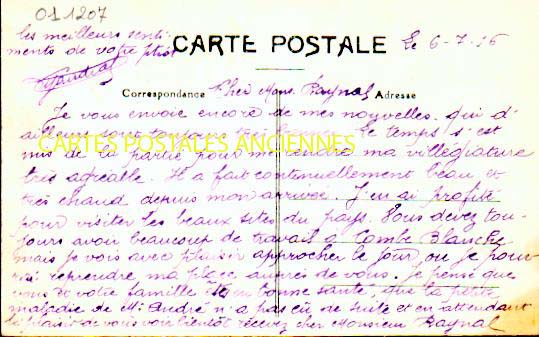 011207
CARTE POSTALE
le 6-7-16
Correspondance
Adresse
Cher Mons. Raynal
Je vous envoie encore de mes nouvelles qui d'
ailleurs sont toujours très bonnes. Le temps s'est
CARTES POSTALES ANCIENNES
mis de la partie pour me rendre ma villégiature
très agréable. Il a fait continuellement beau et
très chaud depuis mon arrivée. J'en ai profité
pour visiter les beaux sites du pays. Vous devez tou-
jours avoir beaucoup de travail à Combe Blanche
mais je vois avec plaisir approcher le jour où je pour-
rai reprendre ma place auprès de vous. je pense que
vous et votre famille êtes en bonne santé, que la petite
maladie de Mr André n'a pas eu de suite et en attendant
le plaisir de vous voir bientôt recevez cher Monsieur Raynal
les meilleurs senti-
ments de votre